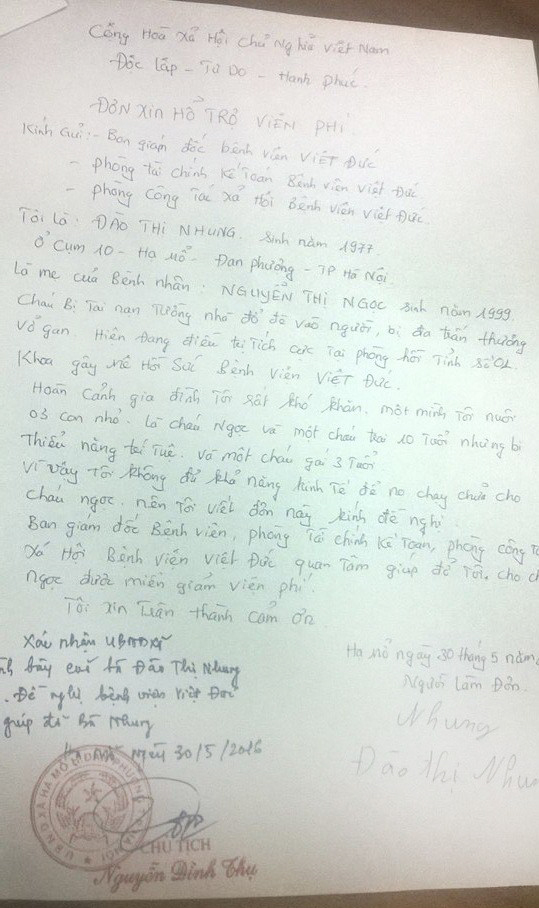 Cộng Hoà Xã Hội Chủ Nghĩa Việt Nam
Độc lập - Tự Do - Hạnh phúc.
ĐƠN XIN HỔ TRỢ VIÊN PHÍ
Kính Gửi: - Ban giám đốc bệnh viên VIỆT Đức
- phòng tài chính Kế Toán Bệnh viên Việt Đức
- phòng Công Tác Xã Hôi Bệnh viên Việt Đức.
Tôi là: ĐÀO THỊ NHUNG. sinh năm 1977
Ở Cụm 10 - Hạ Mỗ - Đan phượng - TP Hà Nội.
Là mẹ của Bệnh nhân: NGUYỄN THỊ NGỌC sinh năm 1999.
Cháu Bị Tai nan Tường nhà đổ đè vào người, bị đa trấn thương
vỡ gan. Hiên Đang điều trị Tích cực Tại phòng hồi Tỉnh số
Khoa gây mê Hồi Sức Bệnh Viên VIỆT ĐỨC.
Hoàn Cảnh gia đình Tôi rất khó khăn. một mình Tôi nuôi
03 con nhỏ. là cháu Ngọc và một cháu trai 10 Tuổi nhưng bị
Thiểu năng trí Tuệ. và một cháu gái 3 Tuổi
Vì vậy Tôi không đủ khả năng kinh Tế để lo chạy chưa cho
cháu ngọc. nên Tôi viết đơn này kính đề nghị.
Ban giám đốc Bệnh viên, phòng Tài chính Kế Toán, phòng công
Xã Hội Bệnh viên Việt Đức quan Tâm giúp đỡ Tôi. cho
Ngọc được miễn giảm viên phí.
Tôi xin trân thành cảm ơn
Xác nhận UBND xã
bày của bà Đào Thị Nhung
Đề nghị bệnh viện Việt Đức
giúp đỡ Bà Nhung
ngày 30/5/2016
Hạ mỗ ngày 30 tháng 5 năm
Người Làm Đơn.
Nhung
Đào Thị Nhun
CHỦ TỊCH
Nguyễn Đình Thụ